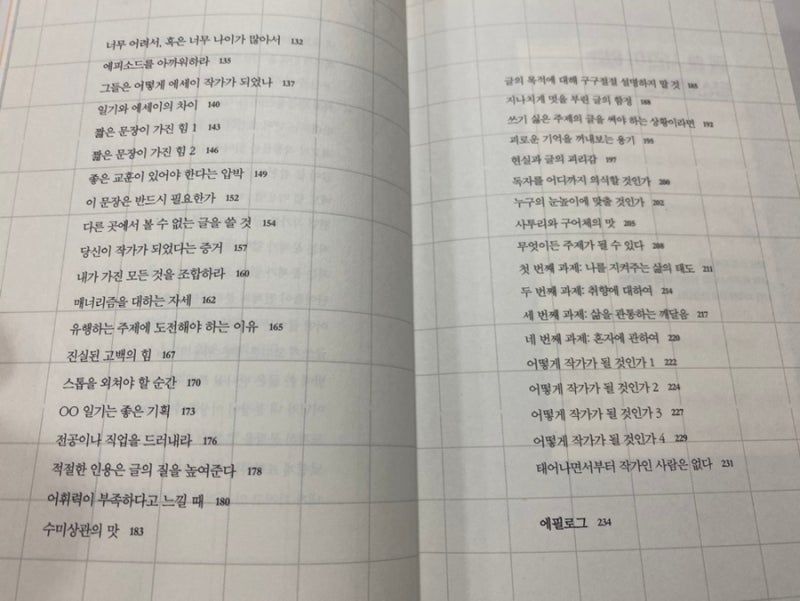 너무 어려서, 혹은 너무 나이가 많아서 132
에피소드를 아까워하라 135
그들은 어떻게 에세이 작가가 되었나 137
일기와 에세이의 차이 140
짧은 문장이 가진 힘 1 143
짧은 문장이 가진 힘 2 146
좋은 교훈이 있어야 한다는 압박 149
이 문장은 반드시 필요한가 152
다른 곳에서 볼 수 없는 글을 쓸 것 154
당신이 작가가 되었다는 증거 157
내가 가진 모든 것을 조합하라 160
매너리즘을 대하는 자세 162
유행하는 주제에 도전해야 하는 이유 165
진실된 고백의 힘 167
스톱을 외쳐야 할 순간 170
OO 일기는 좋은 기획 173
전공이나 직업을 드러내라 176
적절한 인용은 글의 질을 높여준다 178
어휘력이 부족하다고 느낄 때 180
수미상관의 맛 183
글의 목적에 대해 구구절절 설명하지 말 것 185
지나치게 멋을 부린 글의 함정 188
쓰기 싫은 주제의 글을 써야 하는 상황이라면 192
괴로운 기억을 꺼내보는 용기 195
현실과 글의 괴리감 197
독자를 어디까지 의식할 것인가 200
누구의 눈높이에 맞출 것인가 202
사투리와 구어체의 맛 205
무엇이든 주제가 될 수 있다 208
첫 번째 과제: 나를 지켜주는 삶의 태도 211
두 번째 과제: 취향에 대하여 214
세 번째 과제: 삶을 관통하는 깨달음 217
네 번째 과제: 혼자에 관하여 220
어떻게 작가가 될 것인가 1 222
어떻게 작가가 될 것인가 2 224
어떻게 작가가 될 것인가 3 227
어떻게 작가가 될 것인가 4 229
태어나면서부터 작가인 사람은 없다 231
에필로그 234